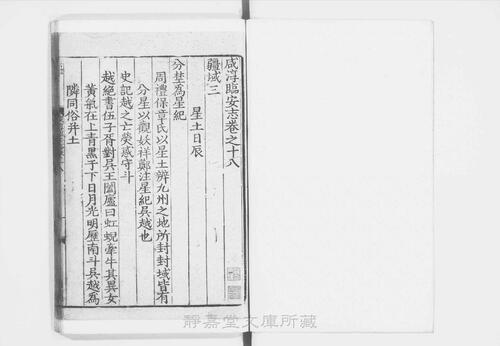 咸淳臨安志卷之十八
疆域三
星土日辰
分埜為星紀
周禮保章氏以星土辨九州之地所封封域皆有
分星以觀妖祥鄭注星紀吳越也
史記越之亡熒惑守斗
越絕書伍子胥對吳王闔廬曰虹蜺牽牛其異女
黃氣在上青黑于下日月光明歷南斗吳越為
隣同俗并土
靜嘉堂文庫所藏